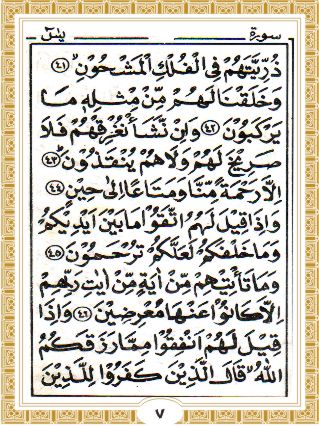 سورة یٰسٓ
ذُرِّيَّتَهُمْ فِي الْفُلْكِ الْمَشْحُوْنِ ﴿٤١﴾
وَخَلَقْنَا لَهُمْ مِّنْ مِّثْلِهٖ مَا
يَرْكَبُوْنَ ﴿٤٢﴾ وَاِنْ نَّشَاْ نُغْرِقْهُمْ فَلَا
صَرِيْخَ لَهُمْ وَلَا هُمْ يُنْقَذُوْنَ ﴿٤٣﴾
اِلَّا رَحْمَةً مِّنَّا وَمَتَاعًا اِلٰى حِيْنٍ ﴿٤٤﴾
وَاِذَا قِيْلَ لَهُمُ اتَّقُوْا مَا بَيْنَ اَيْدِيْكُمْ
وَمَا خَلْفَكُمْ لَعَلَّكُمْ تُرْحَمُوْنَ ﴿٤٥﴾
وَمَا تَأْتِيْهِمْ مِّنْ اٰيَةٍ مِّنْ اٰيٰتِ رَبِّهِمْ
اِلَّا كَانُوْا عَنْهَا مُعْرِضِيْنَ ﴿٤٦﴾ وَاِذَا
قِيْلَ لَهُمْ اَنْفِقُوْا مِمَّا رَزَقَكُمُ
اللّٰهُ ۙ قَالَ الَّذِيْنَ كَفَرُوْا لِلَّذِيْنَ
٧